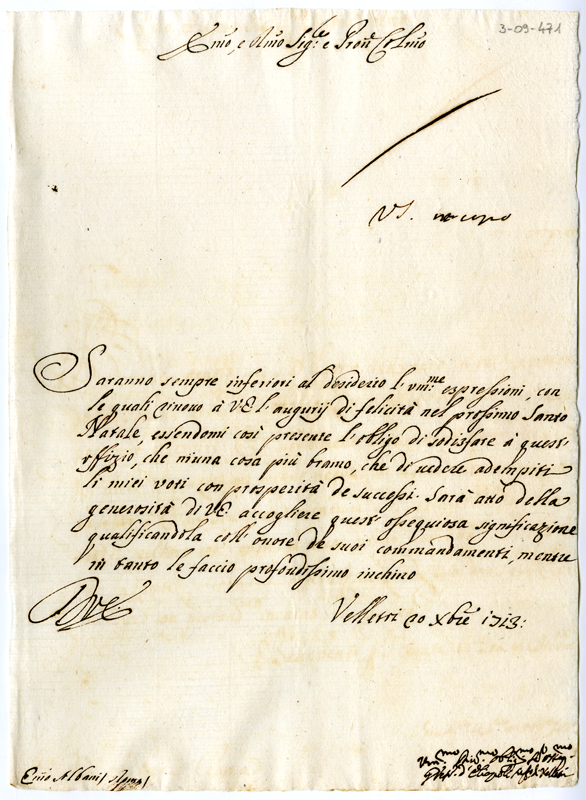 3-09-471
Emo, e Rmo Sig:re e Pron Colmo
Saranno sempre inferiori al desiderio l'vmme espressioni, con
le quali rinouo à VE l'augurij di felicità nel prossimo Santo
Natale, essendomi così presente l'obligo di sodisfare à quest'
vffizio, che niuna cosa più bramo, che di uedere adempiti
li miei voti con prosperità de successi. Sarà atto della
generosità di VE accogliere quest'ossequiosa significazione
qualificandola coll'onore de suoi commandamenti, mentre
in tanto le faccio profondissimo inchino
DVE.
Velletri 20 Xbre 1713:
Emo Albani